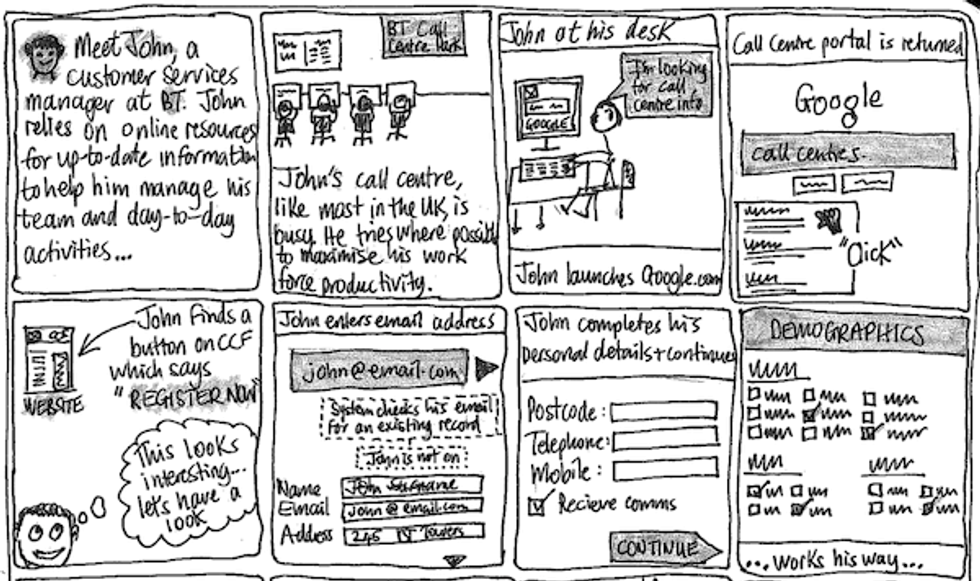 Meet John, a
customer services
manager at BT. John
relies on online resources
for up-to-date information
to help him manage his
team and day-to-day
activities...
BT Call
Centre Park
John's call centre,
like most in the UK, is
busy. He tries where possible
to maximise his work
force productivity.
John at his desk
I'm looking
for call
centre info
GOOGLE
John launches Google.com
Call Centre portal is returned
Google
call centres..
"Click"
John finds a
button on CCF
which says
"REGISTER NOW"
WEBSITE
This looks
interesting...
let's have a
look
John enters email address
john@email.com
System checks his email
for an existing record
John is not on
Name John Surname
Email john@email.com
Address 245 Towers
John completes his
personal details + continues
Postcode:
Telephone:
Mobile:
Recieve comms
CONTINUE
DEMOGRAPHICS
...works his way...